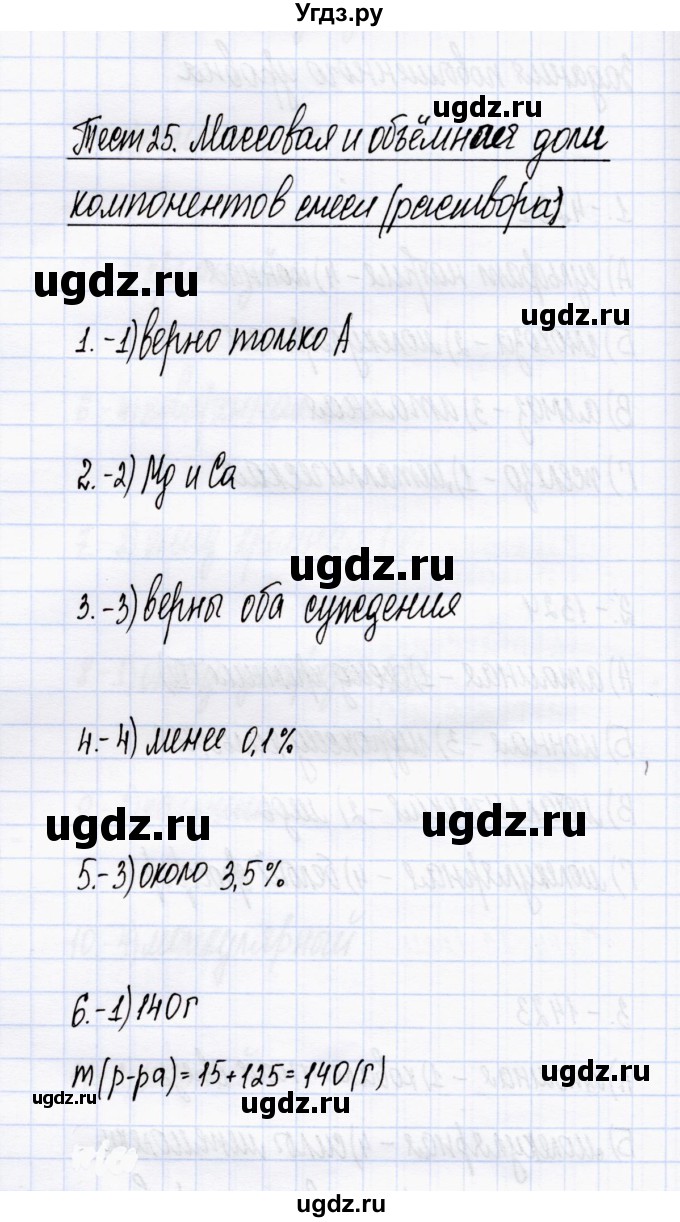 Угдз.ру
ugdz.ru
Тест 25. Массовая и объёмная доли
компонентов смеси (раствора)
ugdz.ru
ugdz.ru
1.-1) верно только А
2.-2) Mg и Ca
ugdz.ru
3.-3) верны оба суждения
4.-4) менее 0,1%
ugdz.ru
ugdz.ru
5.-3) около 3,5%
6.-1) 140 г
m(р-ра) = 15+125 = 140 (г)
ugdz.ru
ugdz.ru
ugdz.ru
ugdz.ru